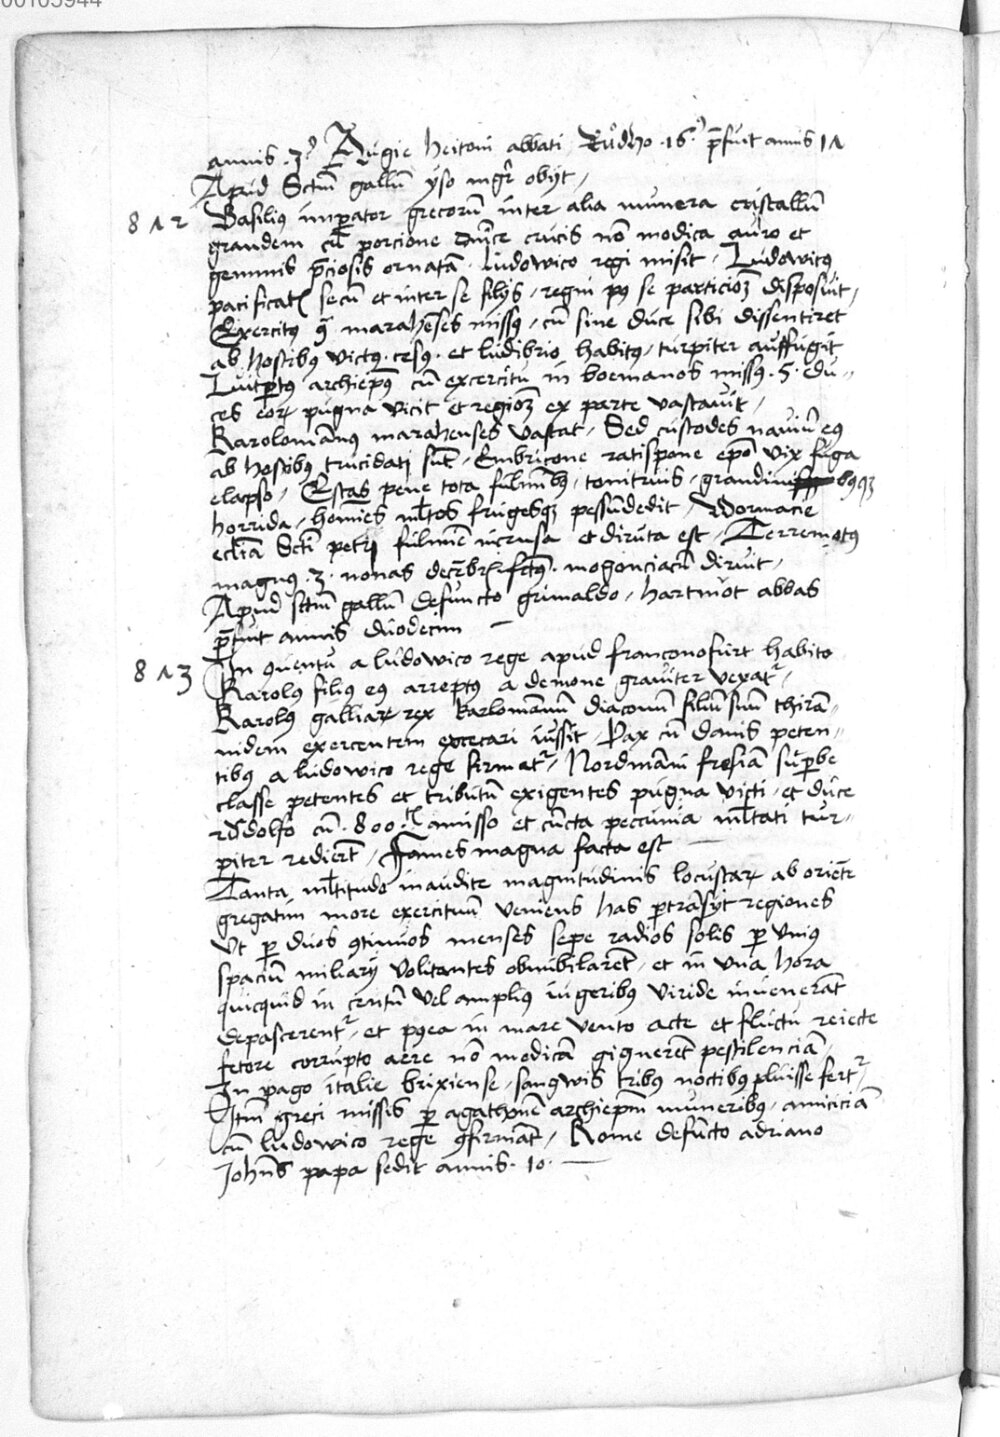 00105944
annis .3⁹ Augie heitoni abbati Růdho .16.⁹ p̄fuit annis 1ʌ
Apud Sctm̄ gallū yso mgr̄ obijt /
8ʌ2 Basiliꝰ imꝑator grecorū inter alia munera cristallū
grandem cū porcione dnīce crucis nō modica auro et
gemmis p̄ciosis ornatā . ludowico regi misit . Ludowicꝰ
pacificatꝭ secū et inter se filijs / regni pꝰ se particiōꝫ disposuit /
Exercitꝰ q̄ marahēses missꝰ / cū sine duce sibi dissentiret
ab hostibꝰ victꝰ . cesꝰ . et ludibrio habitꝰ / turpiter auffugit
Luitp̱tꝰ archiepꝰ cū excercitu in boemanos missꝰ .5. du〃
ces eoꝝ pugna vicit et regiōꝫ ex parte vastauit /
Karolomānꝰ marahenses vastat / Sed custodes nauiū eꝰ
ab hostibꝰ trucidati sūt / Embricone ratispane ep̄o vix fuga
elapso / Estas pene tota fulmībꝰ / tonitruis / grandinibꝰqꝫ
horrida / homīes ml̄tos frugesqꝫ pessūdedit / Wormacie
ecl̄ia Scti petri fulmīe incensa et diruta est / Terremotꝰ
magnꝰ .3. nonas decēbrꝭ fctꝰ . mogonciacū diruit /
Apud sctm̄ gallū defuncto grimaldo / hartmůt abbas
p̄fuit annis duodecim —
8ʌ3 In ꝯuentu a ludowico rege apud franconofurt habito
Karolꝰ filiꝰ eꝰ arreptꝰ a demone grauiter vexatʳ /
Karolꝰ galliaꝝ rex karlomānū diaconū filiū suū thirā〃
nidem exercentem excecari iussit / Pax cū danis peten〃
tibꝰ a ludowico rege firmatʳ / Nordmāni fresiā suꝑbe
classe petentes et tributū exigentes pugna victi / et duce
růdolfo cū .800.tꝭ amisso et cūcta peccunia ml̄tati tur〃
piter redierūt / Fames magna facta est —
Tanta ml̄titudo inaudite magnitudinis locustaꝝ ab oriēte
gregatim more exercituū veniens has ꝑtrāsijt regiones
Vt ꝑ duos ꝯtinuos menses sepe radios solis ꝑ vniꝰ
spaciū miliarij volitantes obnubilarēt / et in vna hora
quicquid in centū vel ampliꝰ iugeribꝰ viride inuenerāt
depascerentʳ / et pꝰea in mare vento acte et fluctu reiecte
fetore corrupto aere nō modicā gignerēt pestilenciā /
In pago italie brixiense / sangwis tribꝰ noctibꝰ pluisse fertʳ /
Itm̄ greci missis ꝑ agathonē archiep̄m muneribꝰ / amiciciā
cū ludowico rege ꝯfirmāt / Rome defūcto adriano
Joh̄ns papa sedit annis . 10 . —